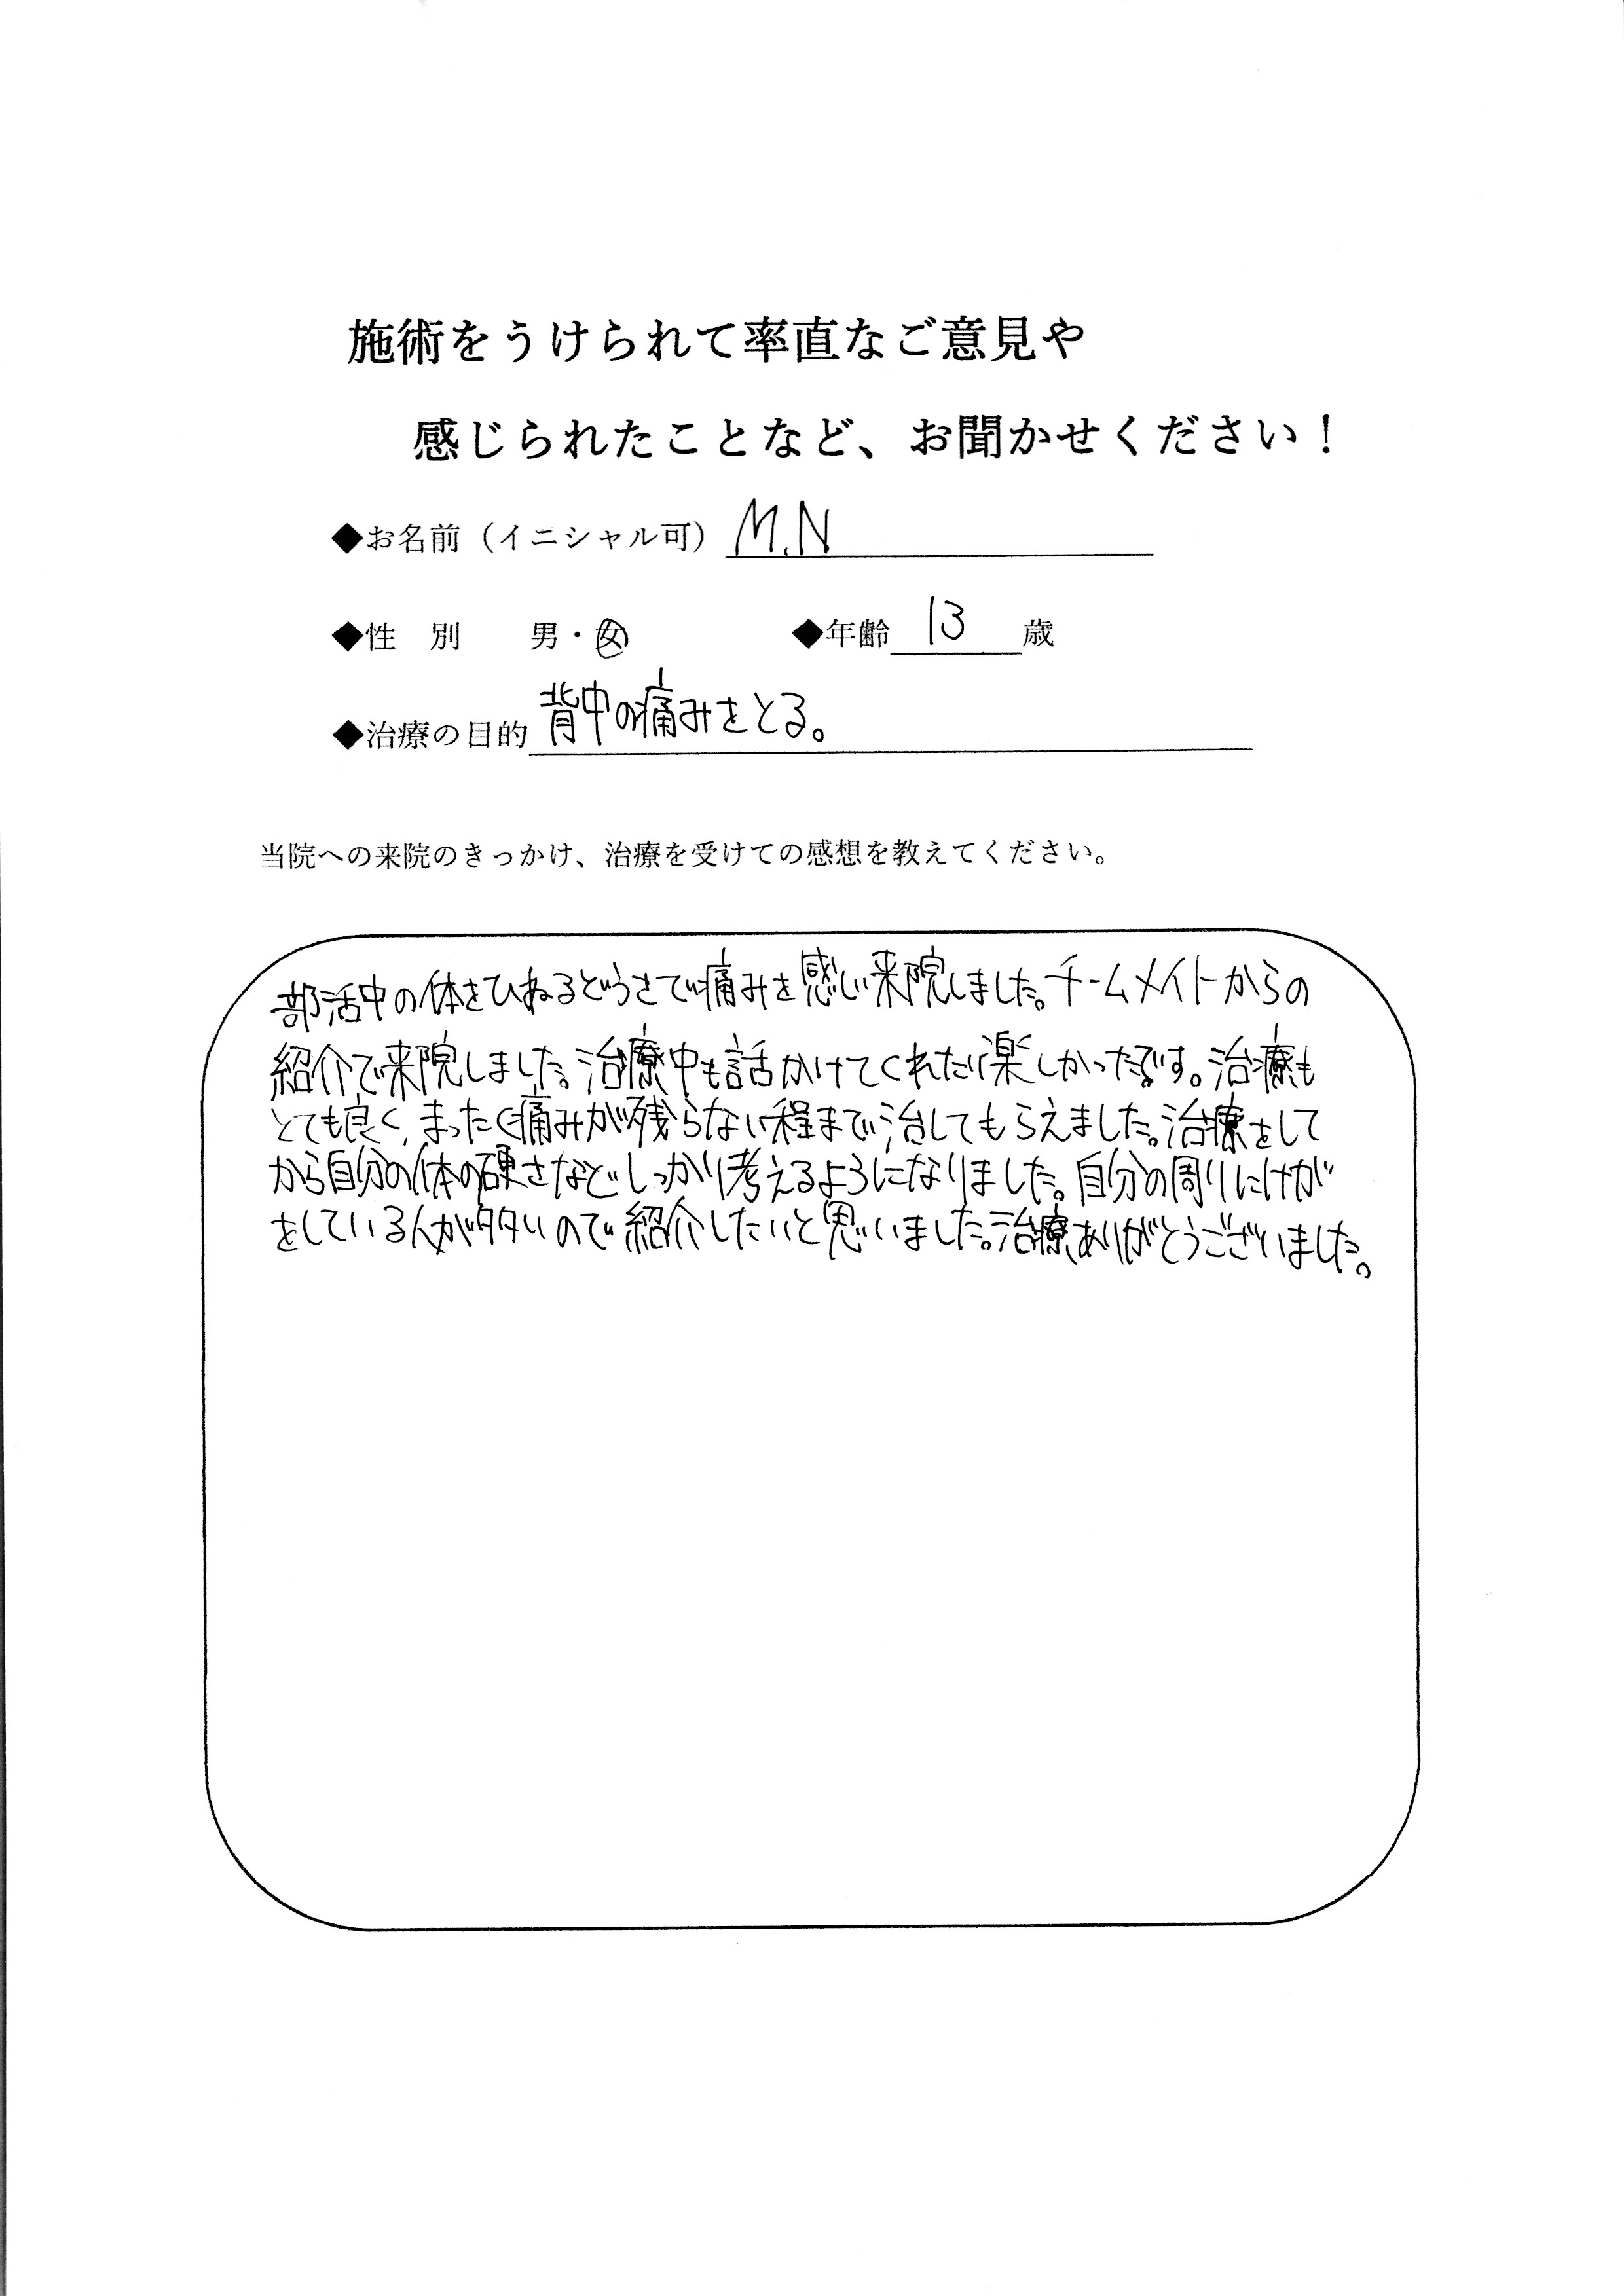 施術をうけられて率直なご意見や
感じられたことなど、お聞かせください！
◆お名前（イニシャル可） M.N
◆性　別　　男・女　　◆年齢 13 歳
◆治療の目的 背中の痛みをとる。
当院への来院のきっかけ、治療を受けての感想を教えてください。
部活中の体をひねるどうさで痛みを感じ来院しました。チームメイトからの
紹介で来院しました。治療中も話かけてくれたり楽しかったです。治療も
とても良く、まったく痛みが残らない程まで治してもらえました。治療をして
から自分の体の硬さなどしっかり考えるようになりました。自分の周りにけが
をしている人が多いので紹介したいと思いました。治療ありがとうございました。